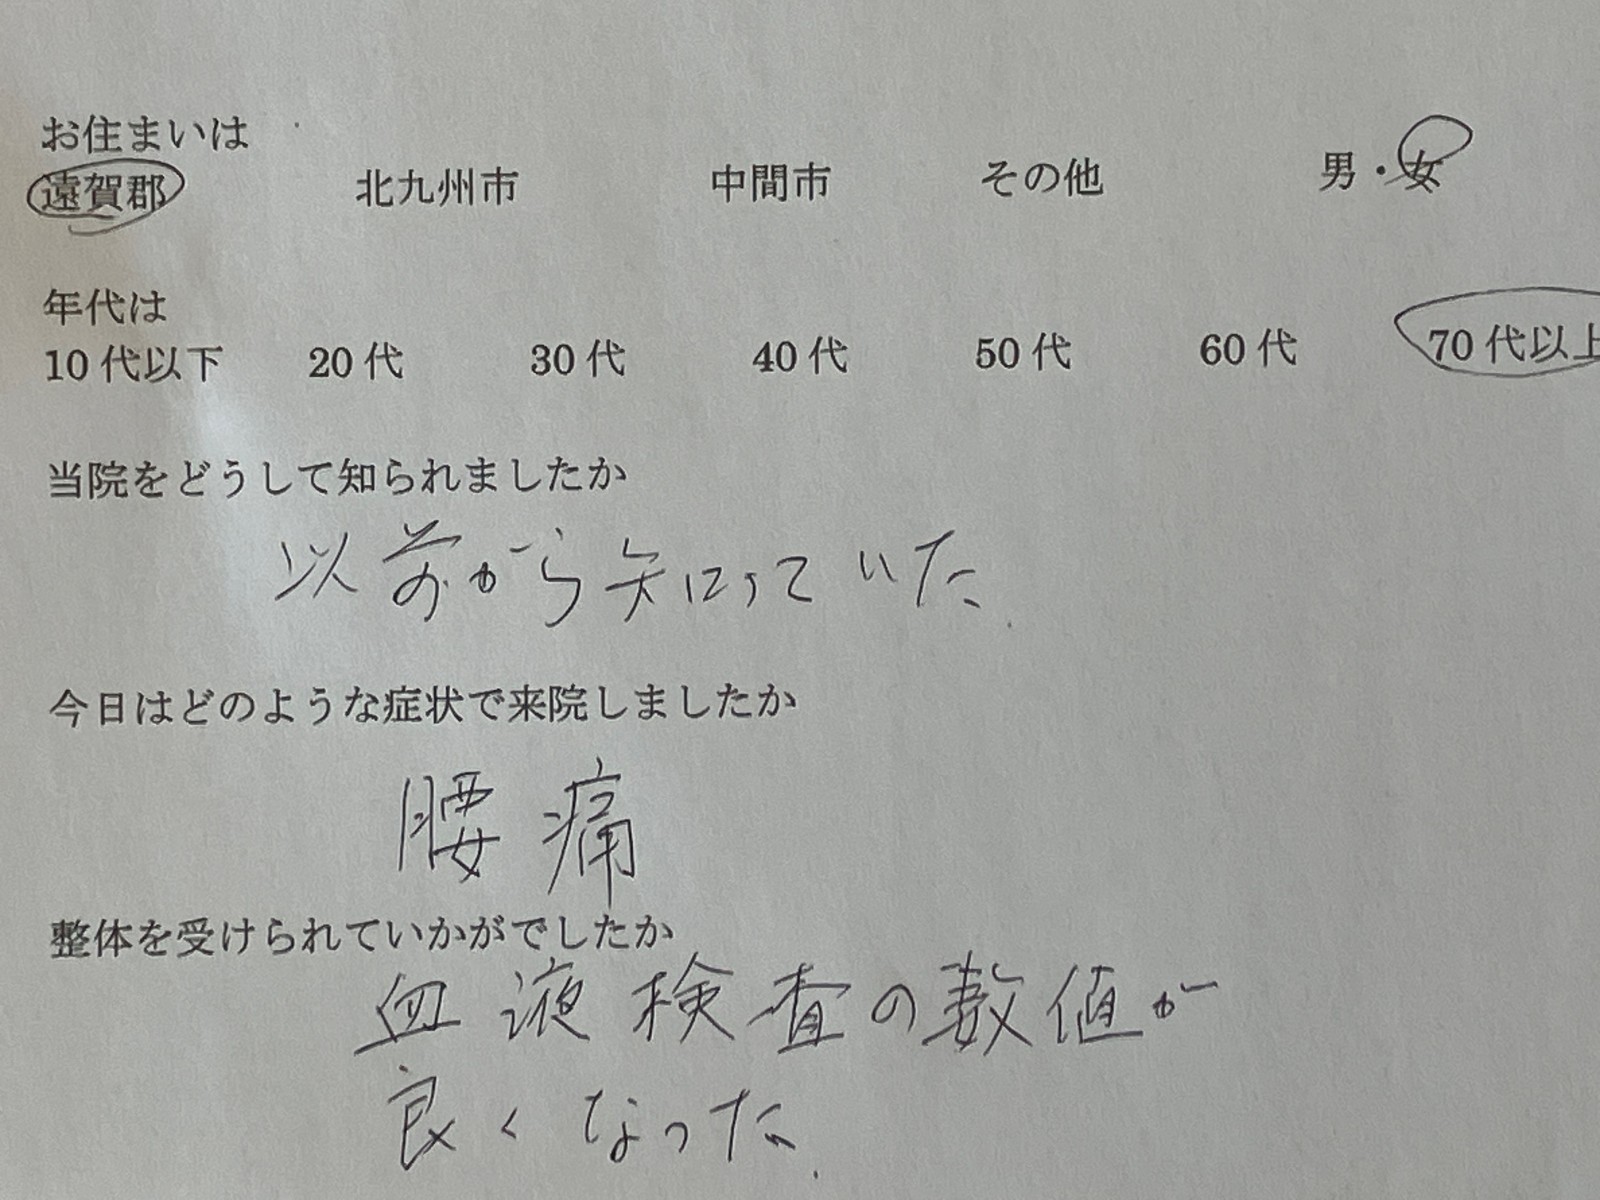 お住まいは
遠賀郡 北九州市 中間市 その他 男・女
年代は
10代以下 20代 30代 40代 50代 60代 70代以上
当院をどうして知られましたか
以前から知っていた.
今日はどのような症状で来院しましたか
腰痛
整体を受けられていかがでしたか
血液検査の数値が
良くなった.